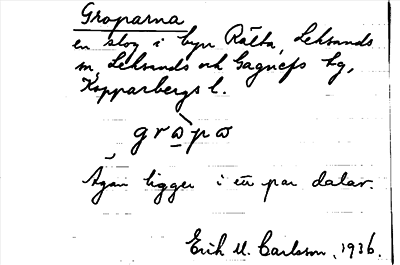 Groparna
en skog i byn Rälta, Leksands
sn, Leksands och Gagnefs tg,
Kopparbergs l.
grɷ̀pɷ
Ägan ligger i ett par dalar.
Erik M. Carlsson, 1936.